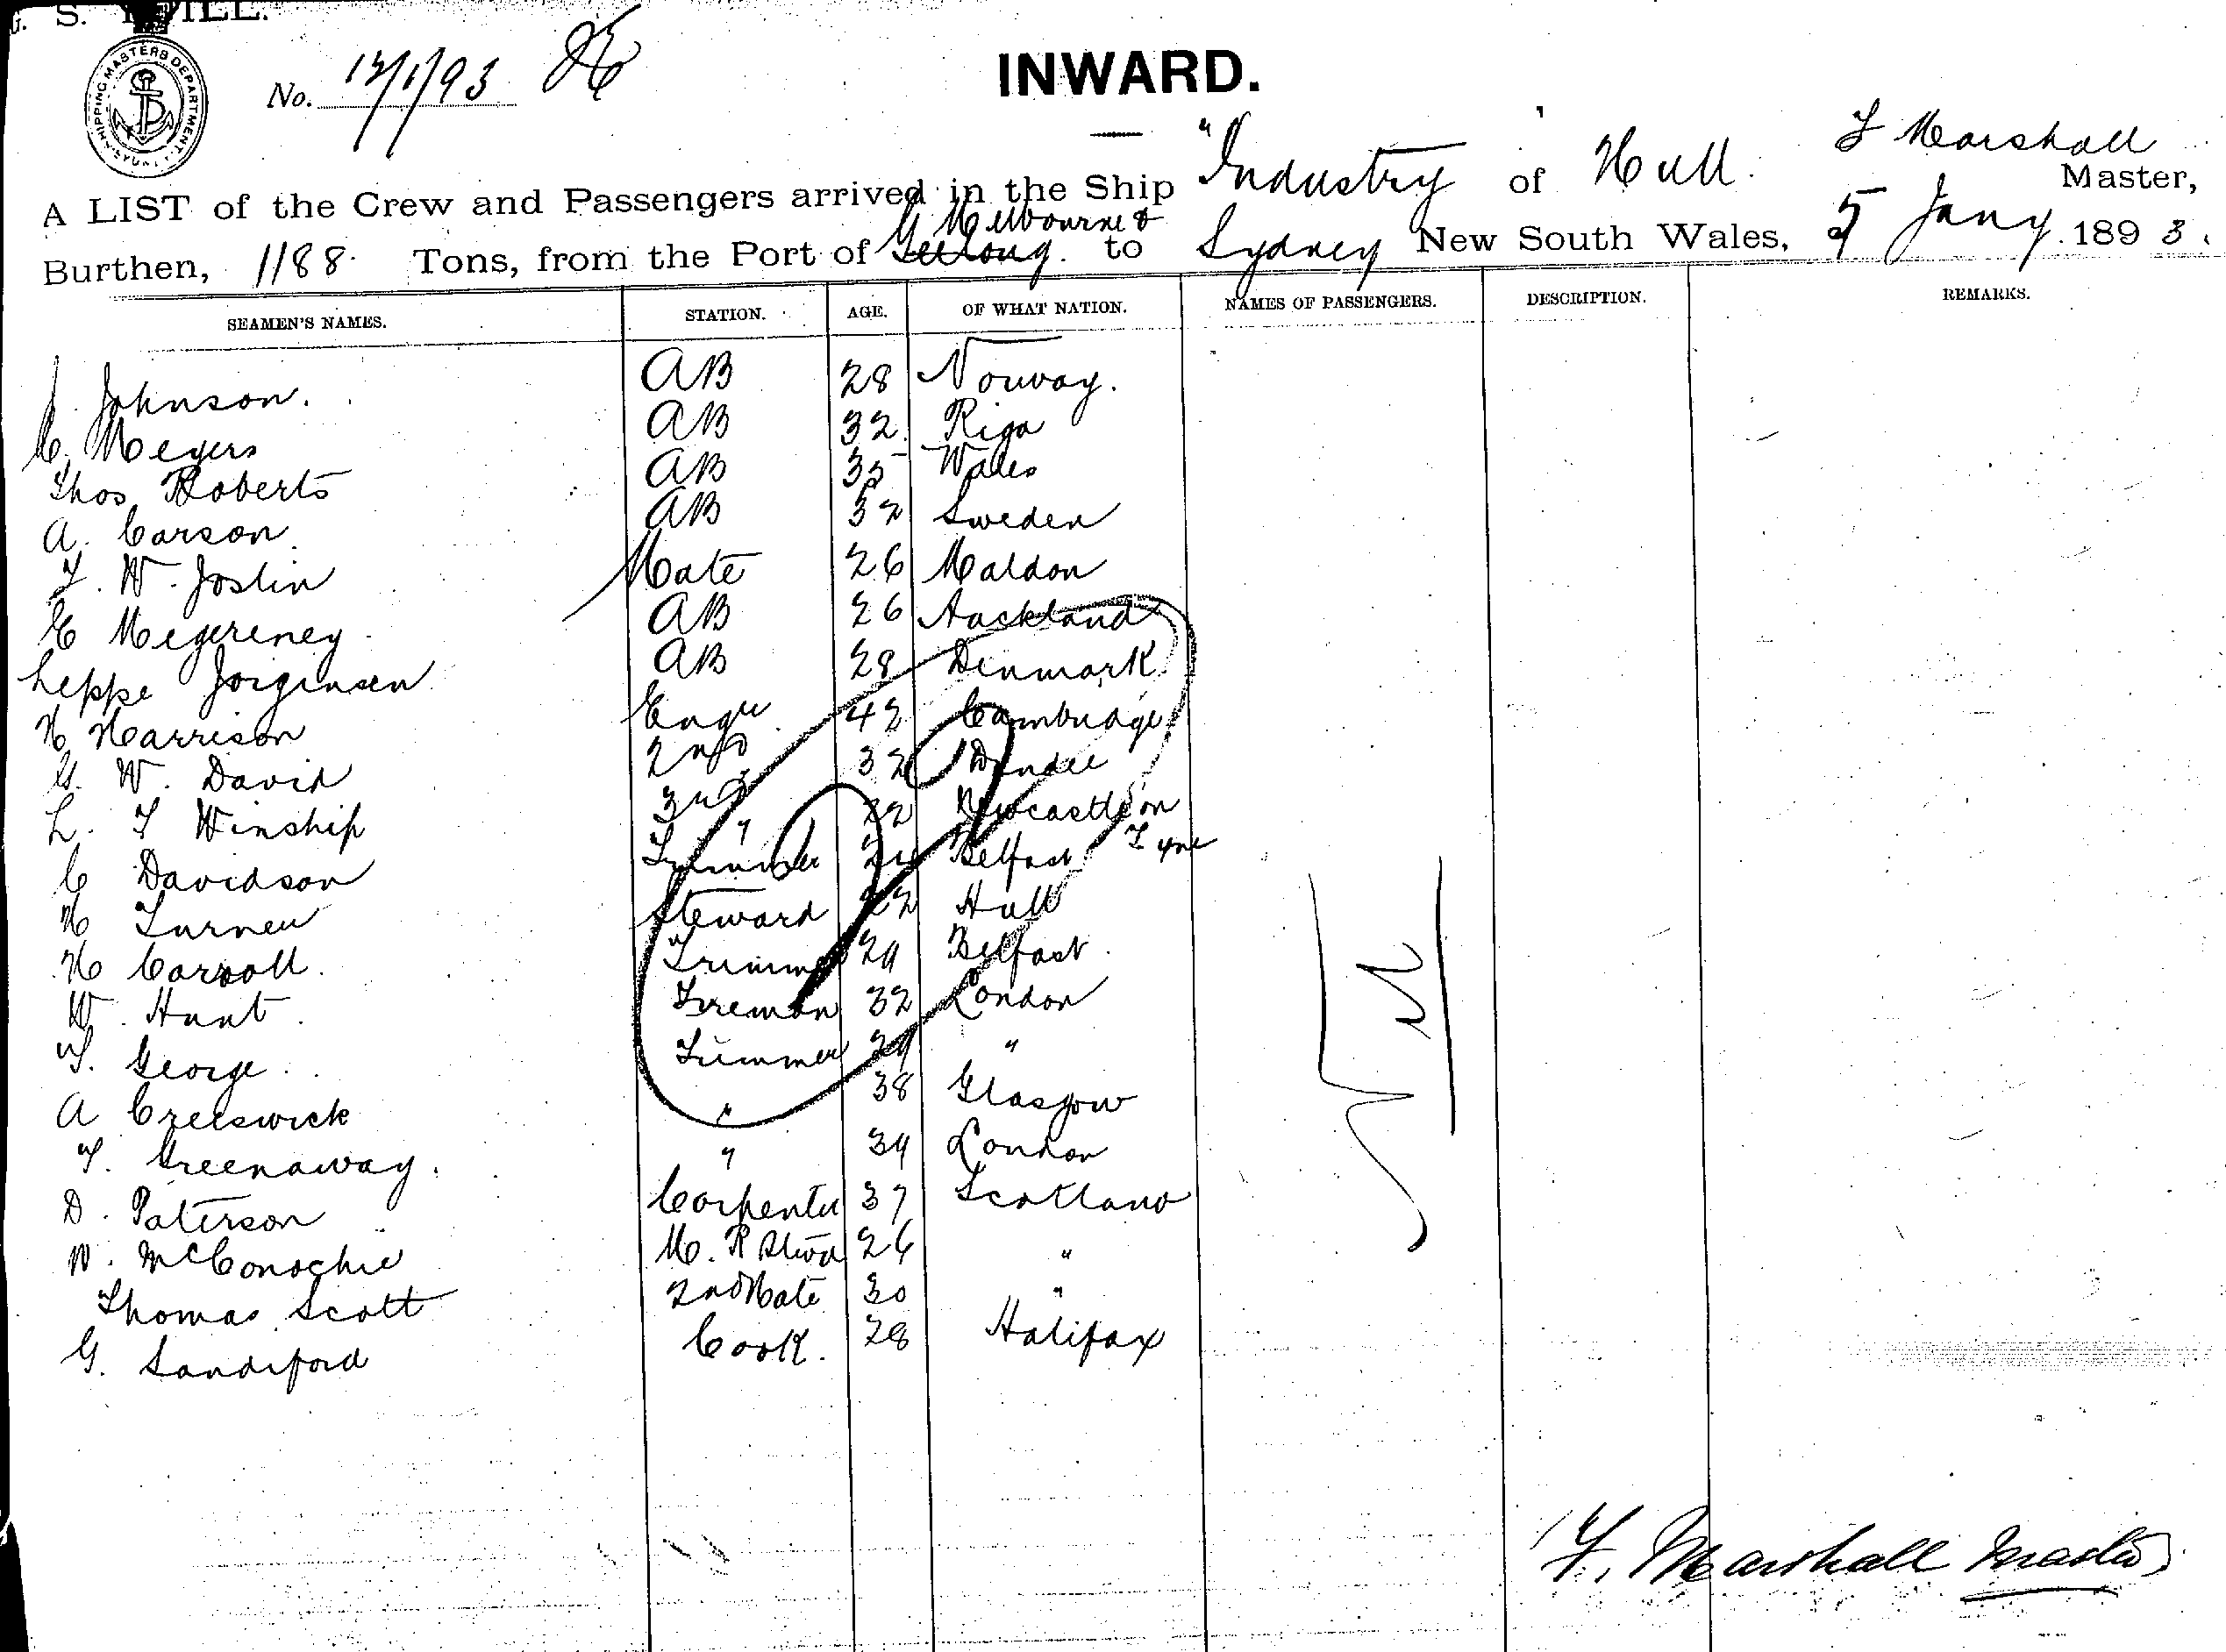 SHIPPING MASTERS DEPARTMENT
No. 12/1/93
INWARD.
F Marshall
A LIST of the Crew and Passengers arrived in the Ship "Industry of Hull. Master,
Melbourne &
Burthen, 1188 Tons, from the Port of Geelong. to Sydney New South Wales, 5 Jany. 1893.
SEAMEN'S NAMES. STATION. AGE. OF WHAT NATION. NAMES OF PASSENGERS. DESCRIPTION. REMARKS.
J. Johnson. AB 28 Norway.
C. Meyers AB 32 Riga
Thos Roberts AB 35 Wales
A. Carson AB 32 Sweden
F. W. Joslin Mate 26 Maldon
E AB 26 Auckland
Jorginsen AB 28 Denmark
H Harrison Engr 42 Cambridge
G. W. David 2nd 32 Dundee
L. T Winship 3rd " 22 Newcastle on Tyne
C Davidson Trimmer Belfast
H Turner Steward 22 Hull
H Carroll Trimmer 24 Belfast
W. Hunt Fireman 32 London
T. George Trimmer "
A Creeswick " 38 Glasgow
T. Greenaway " 34 London
D. Paterson Carpenter 37 Scotland
W. McConochie M. R Stwd 26 "
Thomas Scott 2nd Mate 30 "
G. Sandiford Cook. 28 Halifax
Nil
F. Marshall Master